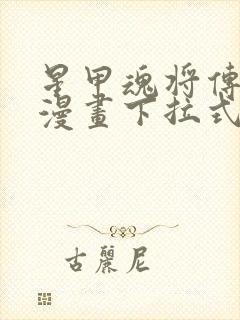 星甲魂将傳
漫畫下拉式
古麗尼